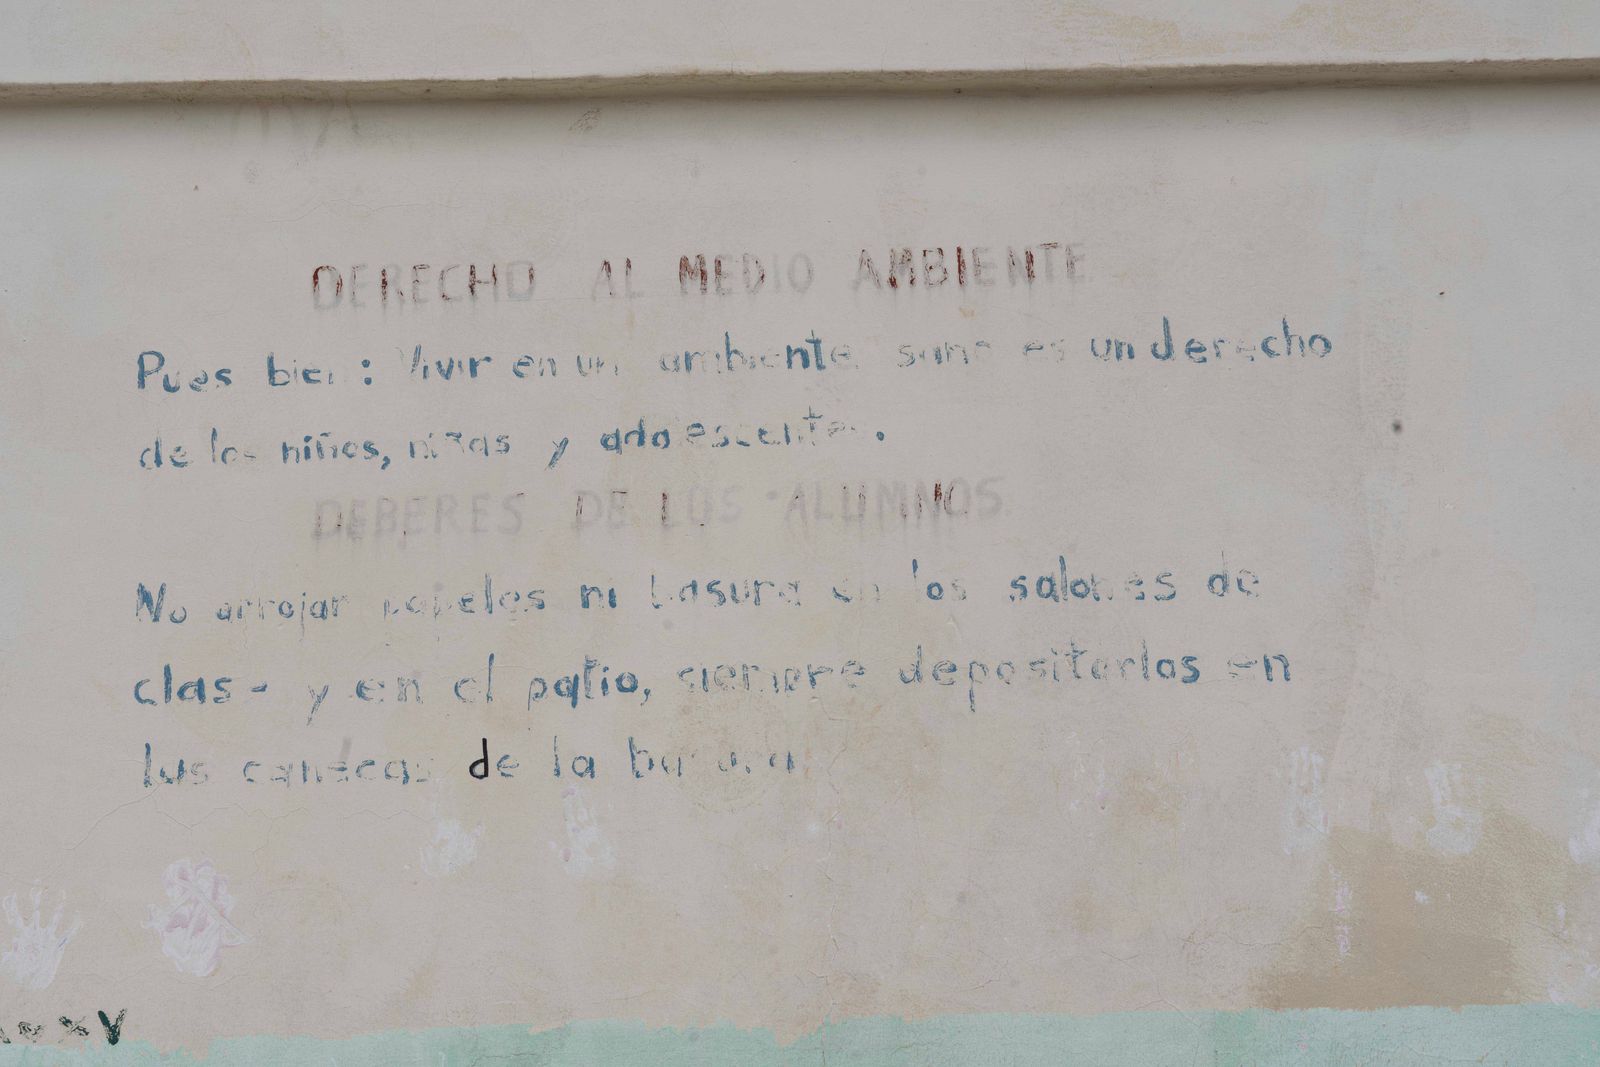 DERECHO AL MEDIO AMBIENTE
Pues bien: Vivir en un ambiente sano es un derecho
de los niños, niñas y adolescentes.
DEBERES DE LOS ALUMNOS
No arrojar papeles ni basura en los salones de
clase y en el patio, siempre depositarlos en
las canecas de la basura